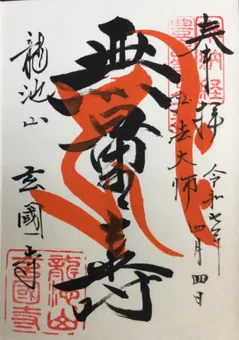 奉拝
令和七年
四月四日
弘法大師
無量寿
龍池山
玄國寺